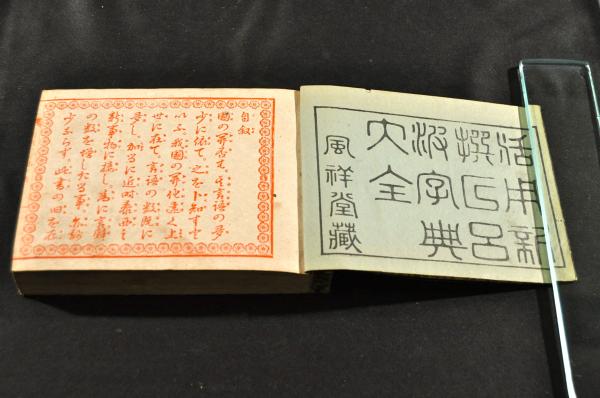 活用新
撰以呂
波字典
大全
風祥堂藏
自叙
國の開否は、其言語の多
少に依て、之を卜知すと
以ふ、我國の開化遠く上
世に在て、言語の数既に
多し、加るに近時泰西之
新事物に接し、為に言辞
の数を増したる事、亦尠
少ならず、此書の